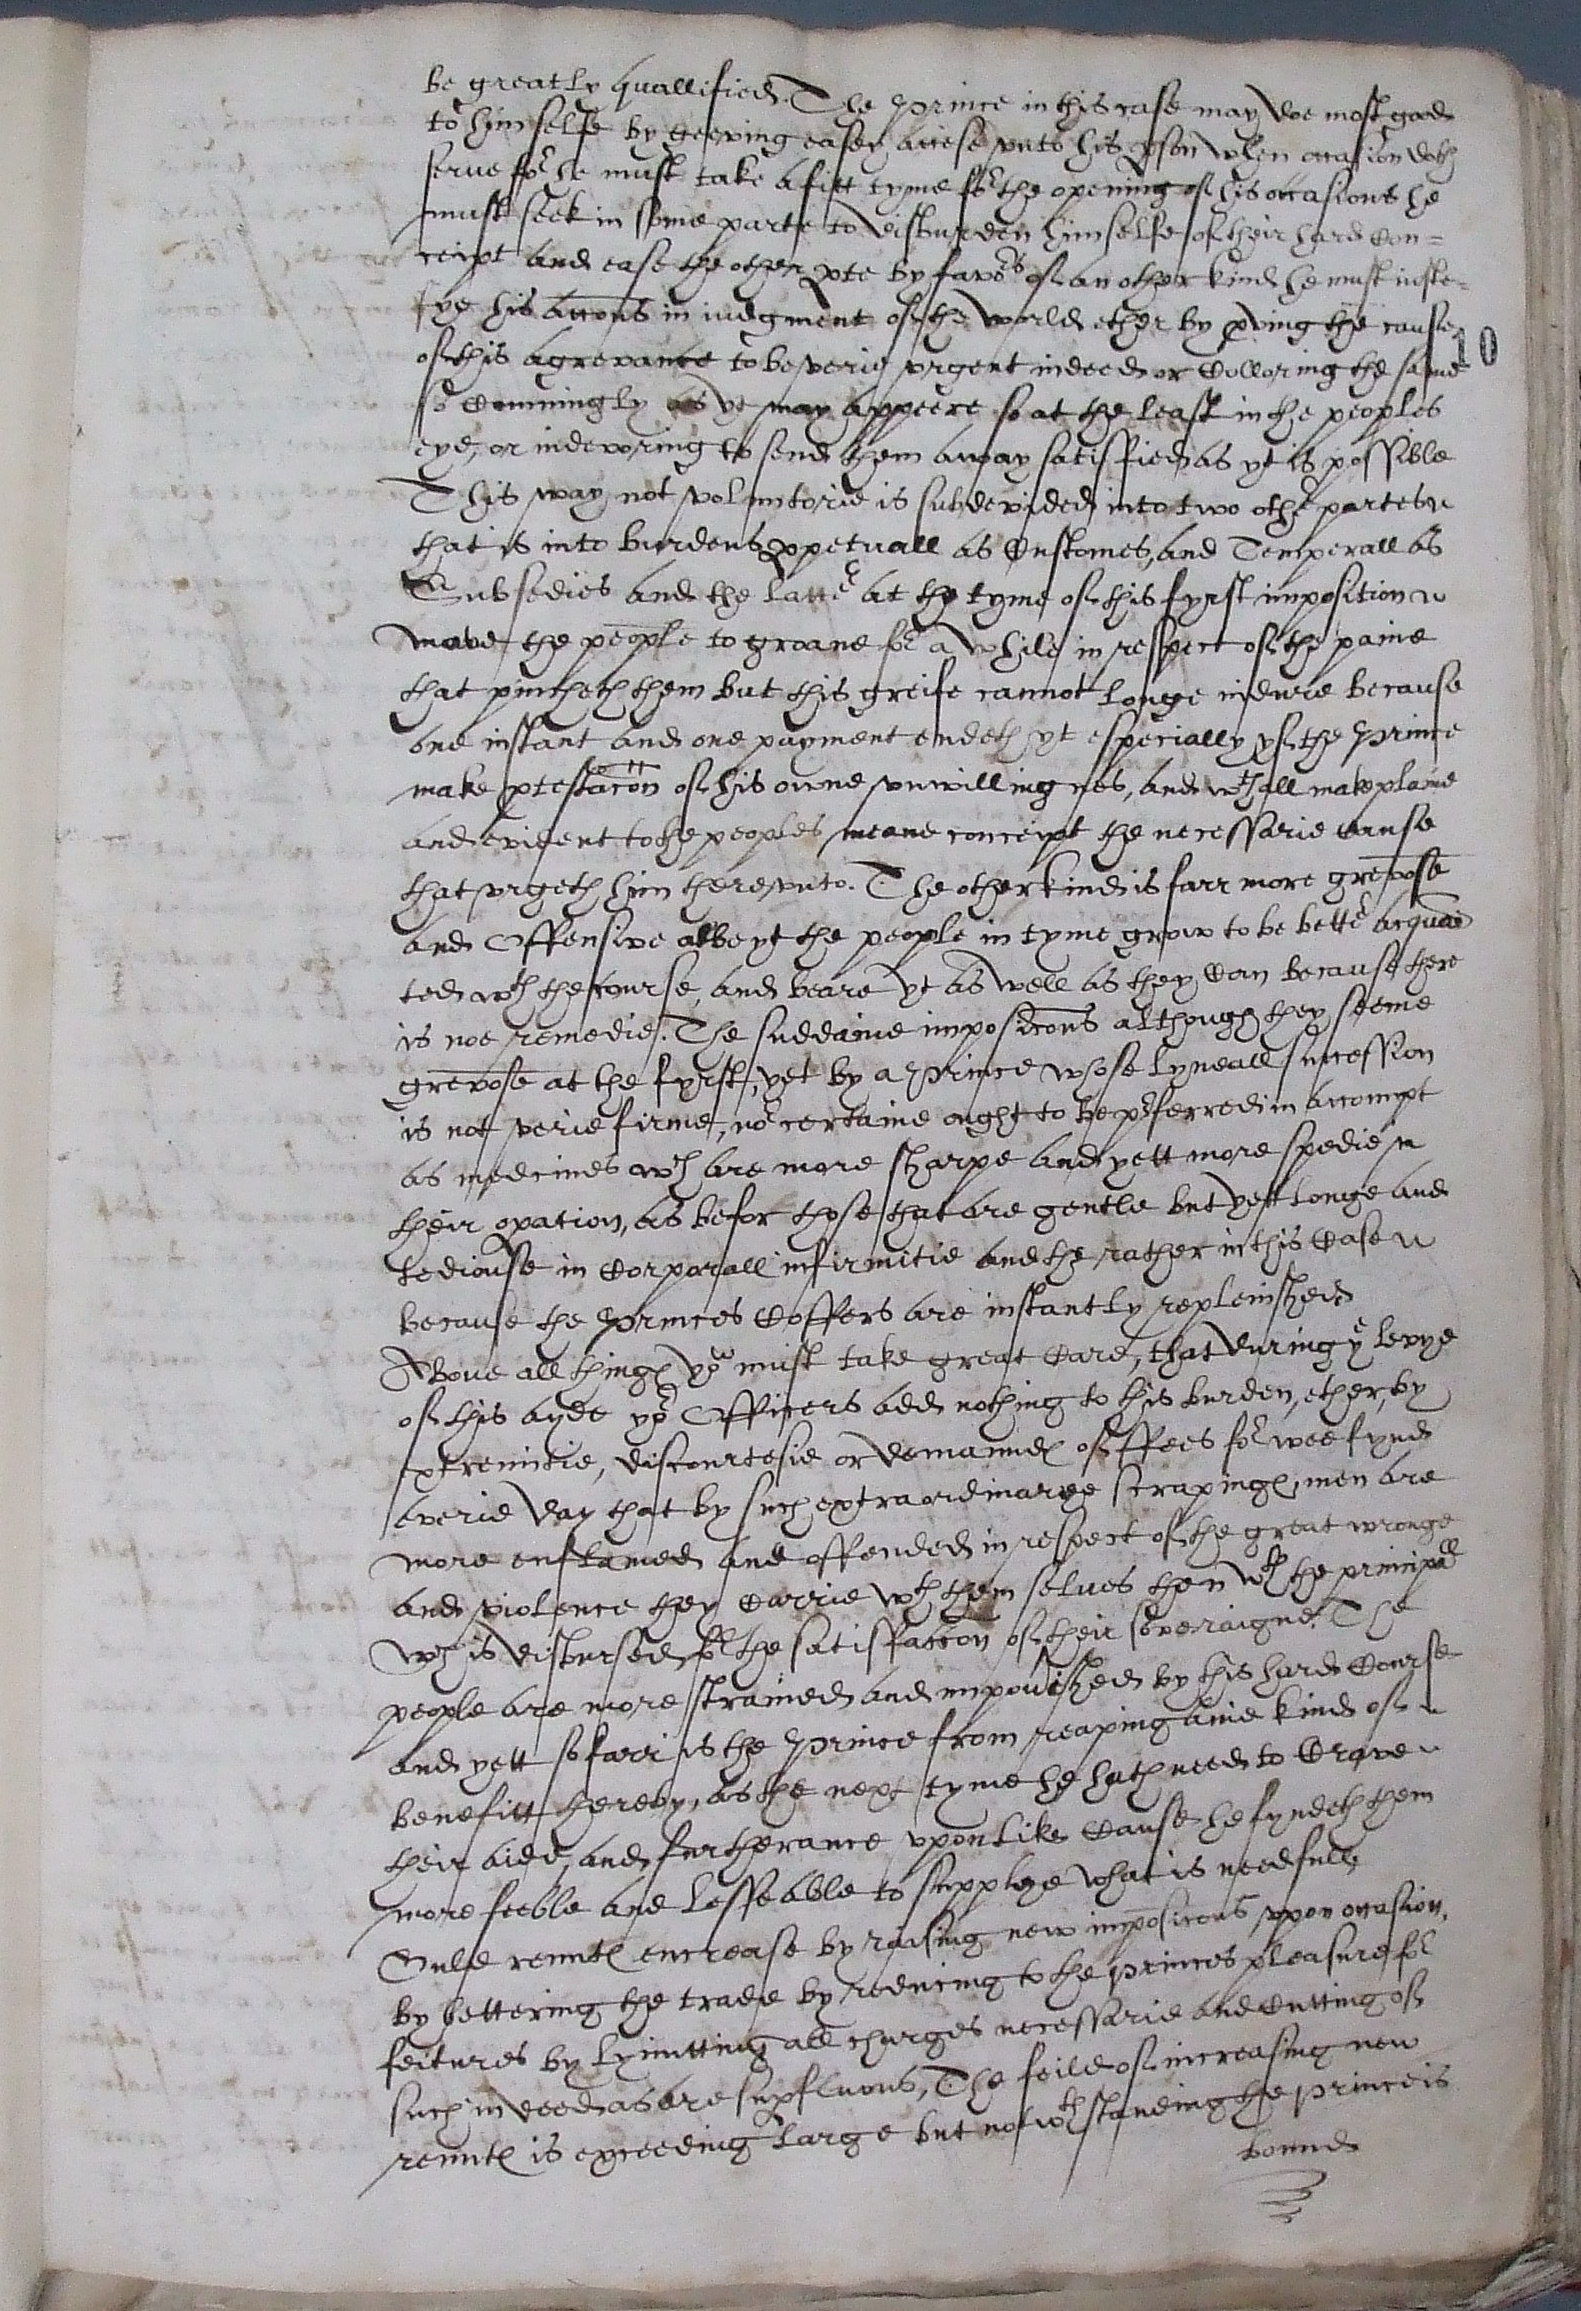 be greatly quallified. The Prince in this case may doe most good
to himselfe by geeving easey accese vnto his pson when occasion doth
serue for he must take a fitt tyme for the opening of his occasions he
must seek in some parte to disburden himselfe of their hard Con=
ceipt and ease the other pte by favors of an other kind he must iuste=
fye his accons in iudgment of the world ether by pving the cause
10
of this agrevance to be verie vrgent indeed or Colloring the same
so Conningly as yt may appeere so at the least in the peoples
eye, or indevoring to send them away satisffied as yt is possible
This way not voluntorie is subdevided into two other partes
that is into burdens ppetuall as Customes, and Temperall as
Subsedies and the latter at the tyme of this fyrst imposition
move the people to groane for a while in respect of the paine
that pincheth them but this greife cannot longe indure because
one instant and one payment endeth yt especially yf the Prince
make ptestacon of his owne vnwillingnes, and wth all make plaine
and evident to the peoples meane conceipt the necessarie Cause
that vrgeth him there vnto. The other kind is farr more grevose
and Offensive albeyt the people in tyme grow to be better acquain
ted wth the course, and beare yt as well as they Can because there
is noe remedie. The suddaine impositons although they seeme
grevose at the fyrst, yet by a Prince whose lyneall succession
is not verie firme, nor certaine ought to be pferred in accompt
as medicines wch are more sharpe and yett more spedie in
their opation, as befor those that are gentle but yett longe and
tediouse in Corporall infirmitie and the rather in this Case
because the Princes Coffers are instantly replenished
Aboue all things you must take great Care, that during ye levye
of this ayde yor Officers add nothing to this burden, ether by
extremitie, discourtesie or demaunds of ffees for wee fynd
everie day that by such extraordinarye scrapings, men are
more enflamed and offended in respect of the great wronge
and violence they Carrie wth them selues then wth the principall
wch is disbursed for the satisffaccon of their soveraigne. The
people are more strained and impouished by this hard Course
and yett so farr is the Prince from reaping anie kind of
benefitt thereby, as the next tyme he hath need to Crave
their aide, and furtherance vpon like Cause he fyndeth them
more feeble and lesse able to supplye what is needfull
Onle rennts encrease by raising new impositons vpon occasion,
by bettering the trade by reducing to the princes pleasure for
feitures by lymitting all charges necessarie and Cutting of
such in deed as are supfluous, The feild of increasing new
rennts is exceeding large but notwthstanding the prince is
bound